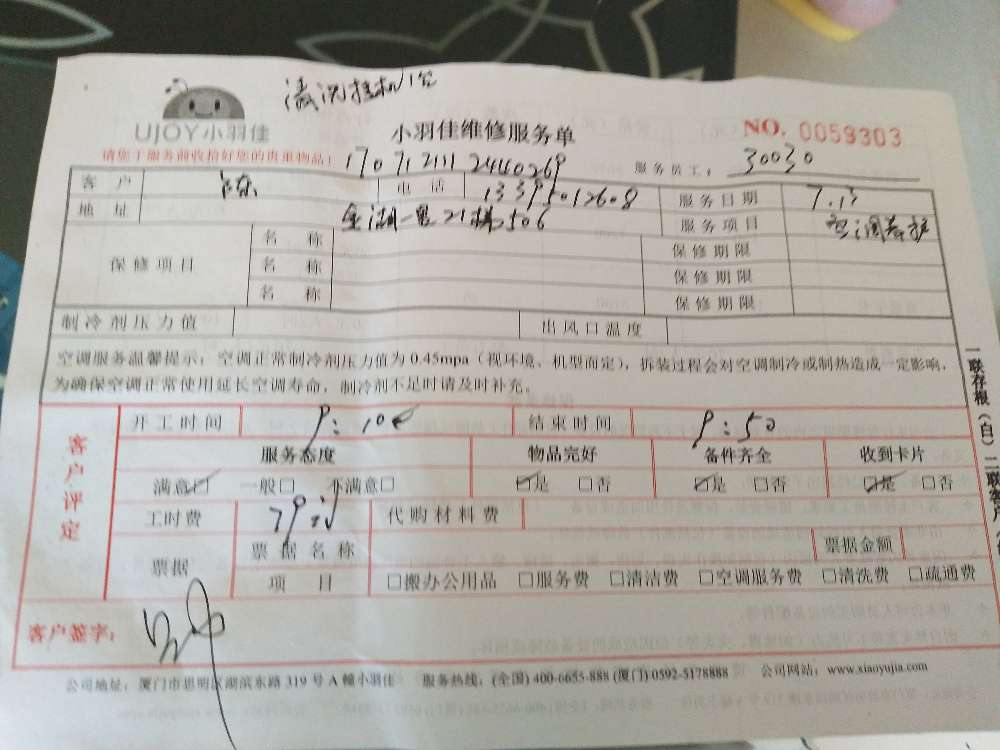 清洗挂机1台
UJOY小羽佳
小羽佳维修服务单
NO. 0059303
请您于服务前收拾好您的贵重物品!
170712111 2440269
服务员工: 30030
客户 电话 13395012608 服务日期 7.13
地址 金湖一里21梯506 服务项目 空调养护
保修项目
名称 保修期限
名称 保修期限
名称 保修期限
制冷剂压力值 出风口温度
空调服务温馨提示:空调正常制冷剂压力值为0.45mpa(视环境、机型而定),拆装过程会对空调制冷或制热造成一定影响,
为确保空调正常使用延长空调寿命,制冷剂不足时请及时补充。
客户评定
开工时间 9:10 结束时间 9:50
服务态度 物品完好 备件齐全 收到卡片
满意☑ 一般□ 不满意□ ☑是 □否 ☑是 □否 ☑是 □否
工时费 代购材料费
票据 票据名称 票据金额
项目 □搬办公用品 □服务费 □清洁费 □空调服务费 □清洗费 □疏通费
客户签字:
公司地址:厦门市思明区湖滨东路319号A幢小羽佳 服务热线:(全国)400-6655-888(厦门)0592-5178888 公司网站:www.xiaoyujia.com
一联存根(白)二联客户